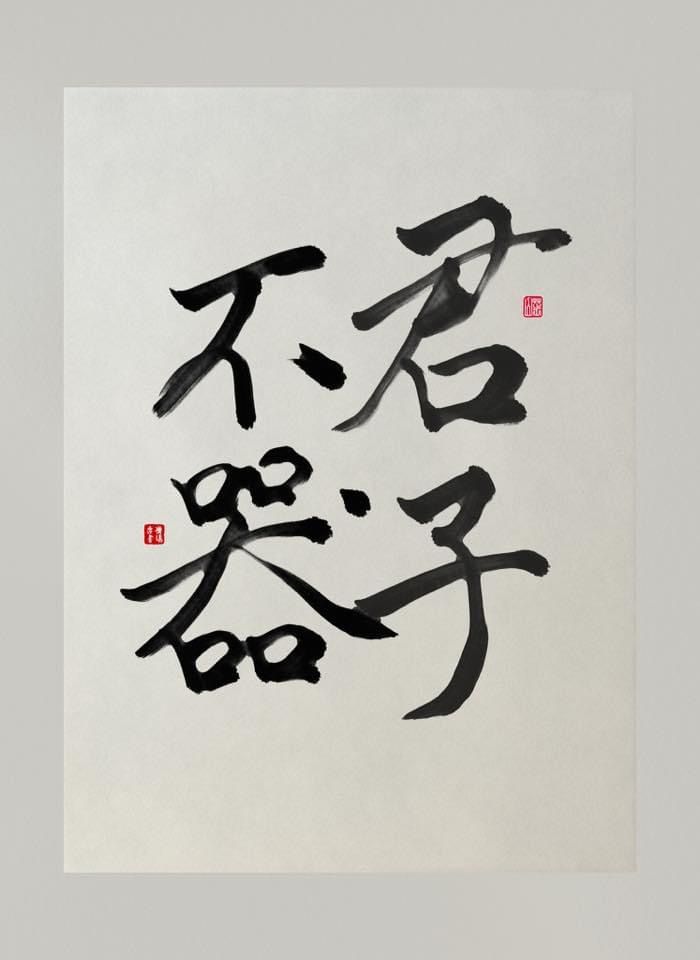 君子
不器